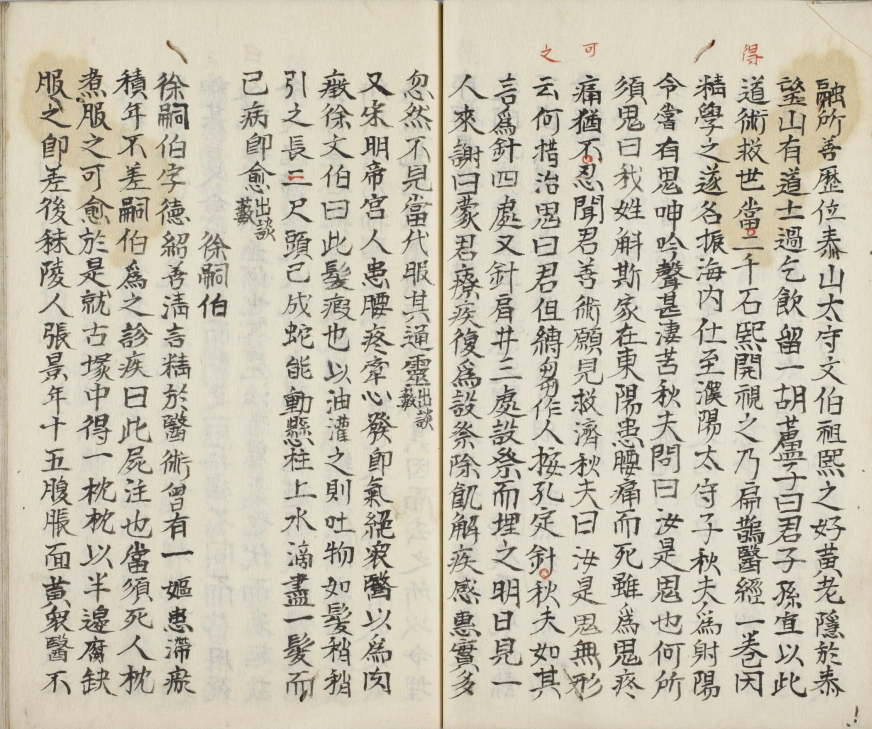 融所善歴位泰山太守文伯祖熙之好黄老隱於泰
望山有道士過乞飲留一胡蘆子曰君子孫宜以此
道術救世當二千石熙開視之乃扁鵲醫經一巻因
得
精學之遂名振海内仕至濮陽太守子秋夫為射陽
令嘗有鬼呻吟聲甚淒苦秋夫問曰汝是鬼也何所
須鬼曰我姓斛斯家在東陽患腰痛而死雖為鬼疼
痛猶不忍聞君善術願見救濟秋夫曰汝是鬼無形
可
云何措治鬼曰君但縛芻作人按孔定針秋夫如其
之
言為針四處又針肩井三處設祭而埋之明日見一
人來謝曰蒙君療疾復為設祭除飢解疾感惠實多
忽然不見當代服其通靈出談藪
又宋明帝宮人患腰疼牽心發即氣絕衆醫以為肉
癥徐文伯曰此髮瘕也以油灌之則吐物如髮稍稍
引之長三尺頭已成蛇能動懸柱上水滴盡一髮而
已病即愈出談藪
徐嗣伯
徐嗣伯字德紹善清言精於醫術曾有一嫗患滯瘀
積年不差嗣伯為之診疾曰此屍注也當須死人枕
煮服之可愈於是就古塚中得一枕枕以半邊腐缺
服之即差後秣陵人張景年十五腹脹面黄衆醫不